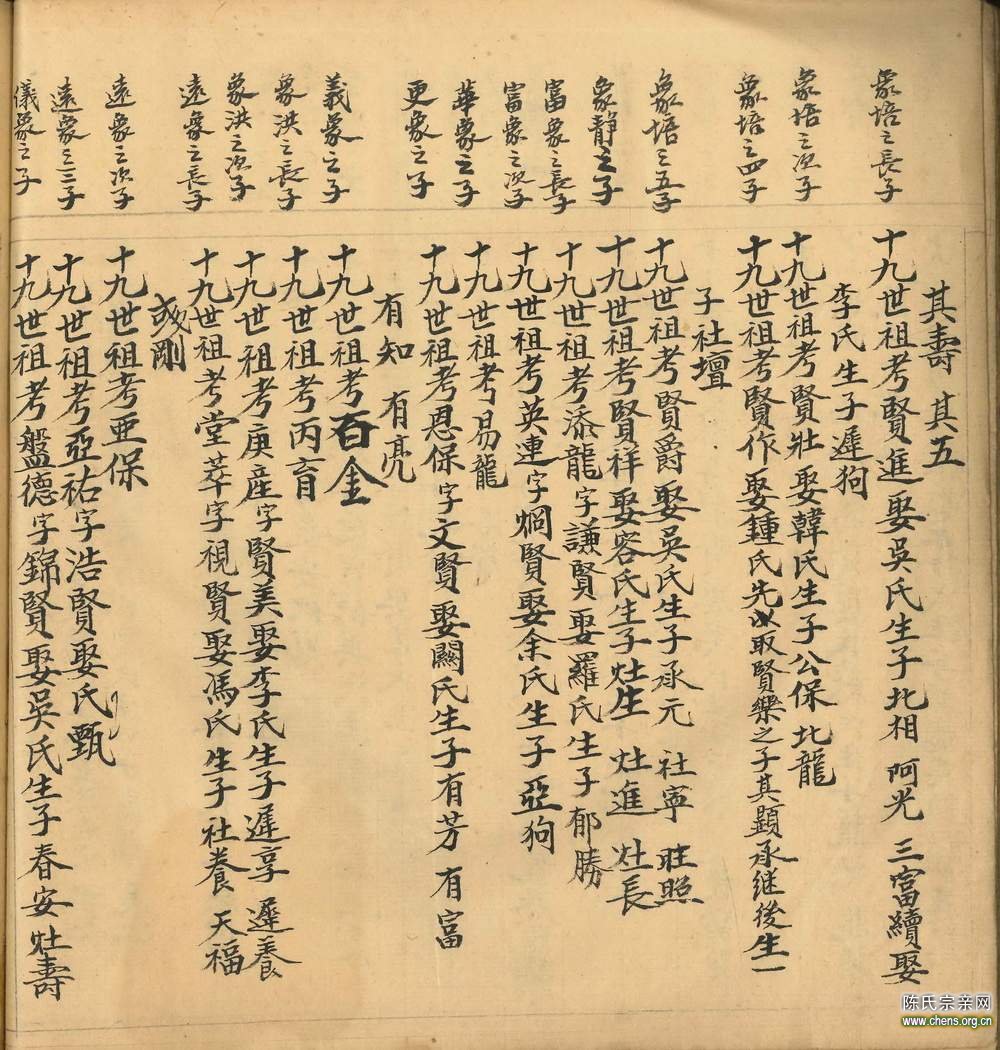 其壽 其五
象培之長子
十九世祖考賢進娶吳氏生子北相 阿光 三富續娶
李氏生子遲狗
象培之次子
十九世祖考賢壯娶韓氏生子公保 北龍
象培之四子
十九世祖考賢作娶鍾氏先取賢樂之子其顕承继後生一
子社壇
象培之五子
十九世祖考賢爵娶吳氏生子承元 社寧 旺照
象靜之子
十九世祖考賢祥娶容氏生子灶生 灶進 灶長
富象之長子
十九世祖考添龍字謙賢娶羅氏生子郁勝
富象之次子
十九世祖考英連字烱賢娶余氏生子亞狗
華象之子
十九世祖考易龍
更象之子
十九世祖考恩保字文賢娶關氏生子有芳 有富
有知 有亮
義象之子
十九世祖考石金
象洪之長子
十九世祖考丙育
象洪之次子
十九世祖考庚産字賢美娶李氏生子遲享 遲養
遠象之長子
十九世祖考堂萃字視賢娶馮氏生子社養 天福
成剛
遠象之次子
十九世祖考亜保
遠象之三子
十九世祖考亞祐字浩賢娶氏甄
儀象之子
十九世祖考盤德字錦賢娶吳氏生子春安 灶壽
陈氏宗亲网
www.chens.org.cn